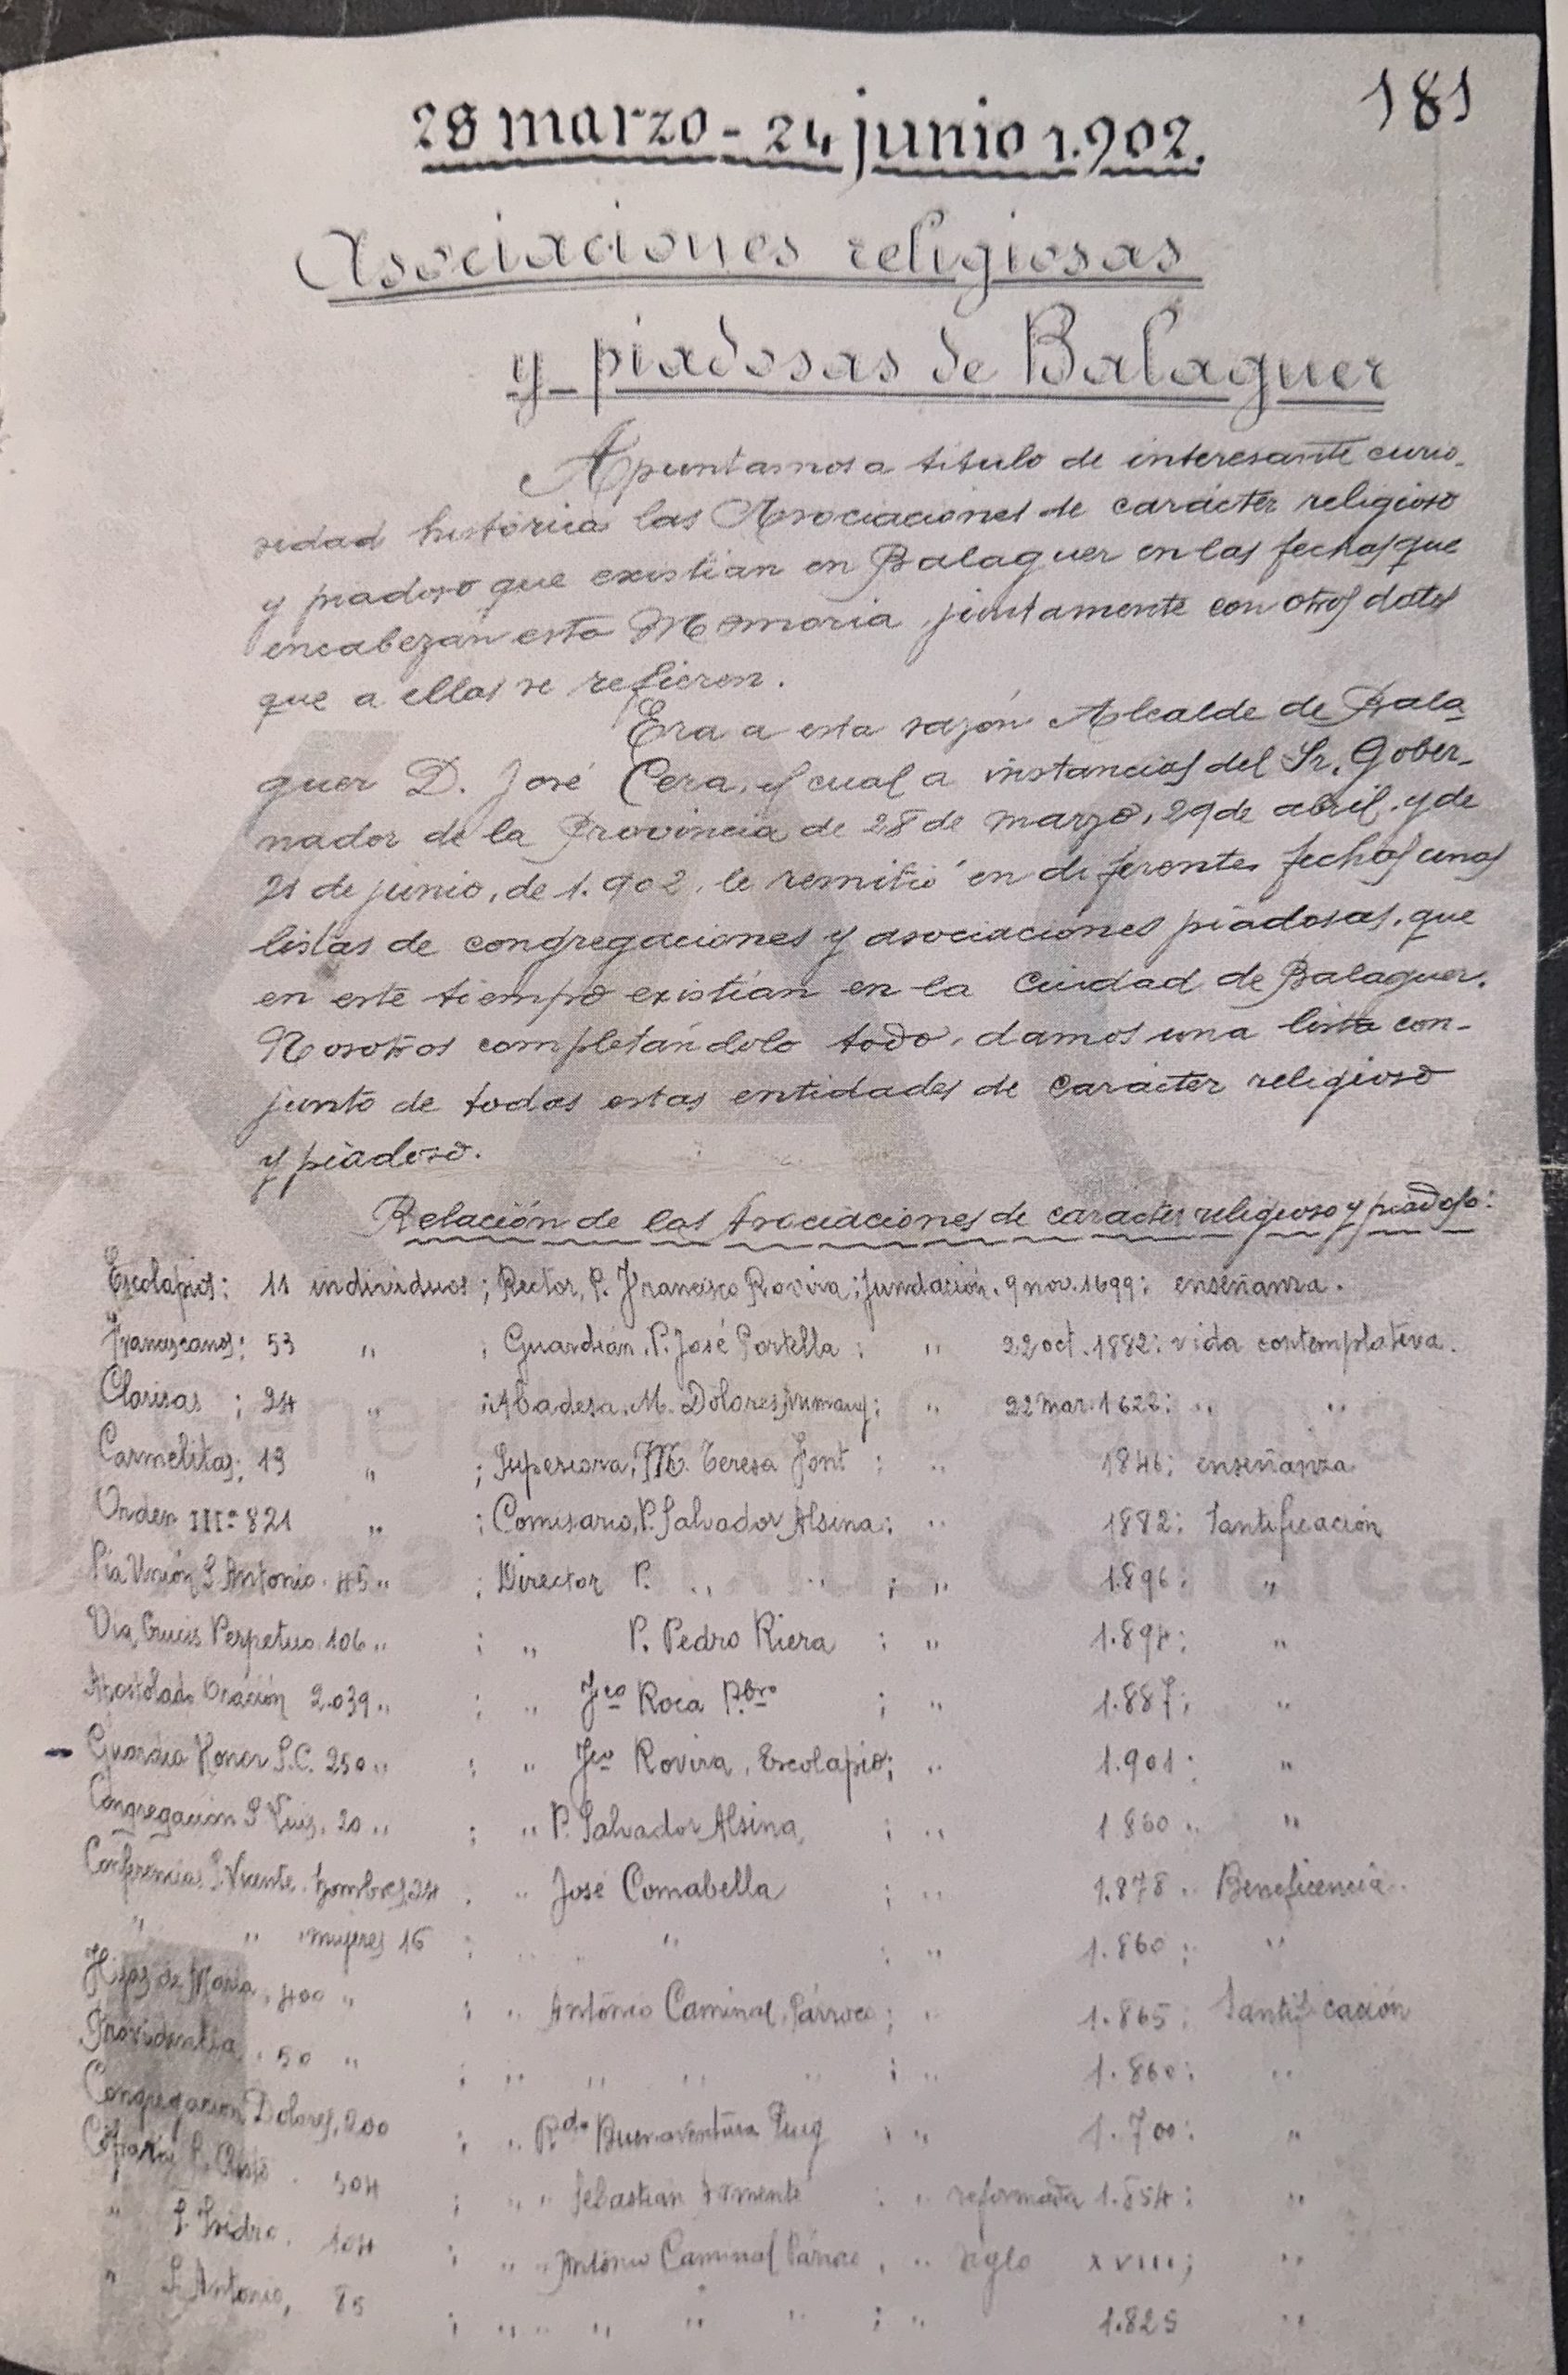 181
28 marzo - 24 junio 1.902.
Asociaciones religiosas
y piadosas de Balaguer
Apuntamos a titulo de interesante curio-
sidad histórica las Asociaciones de carácter religioso
y piadoso que existian en Balaguer en las fechas que
encabezan esta Memoria, juntamente con otros datos
que a ellas se refieren.
Era a esta sazón Alcalde de Bala
guer D. José Cera, el cual a instancias del Sr. Gober-
nador de la Provincia de 28 de marzo, 29 de abril, y de
21 de junio, de 1.902, le remitió en diferentes fechas unas
listas de congregaciones y asociaciones piadosas, que
en este tiempo existían en la Ciudad de Balaguer.
Nosotros completándolo todo, damos una lista con-
junto de todas estas entidades de carácter religioso
y piadoso.
Relación de las Asociaciones de carácter religioso y piadoso:
Escolapios: 11 individuos; Rector, P. Francisco Rovira; fundación. 9 nov. 1699: enseñanza.
Franciscanos: 53 " ; Guardián, P. José Portella ; " 22 oct. 1882: vida contemplativa.
Clarisas ; 24 " ; Abadesa, M. Dolores ; " 22 mar. 1622: " "
Carmelitas; 19 " ; Superiora, M. Teresa Font ; " 1846; enseñanza
Orden IIIª 821 " ; Comisario, P. Salvador Alsina; " 1882; Santificación
Pía Unión S. Antonio. 45 " ; Director P. " " ; " 1.896; "
Via Crucis Perpetuo. 106 " ; " P. Pedro Riera ; " 1.894; "
Apostolado Oración 2.039 " ; " Fco Roca Pbro ; " 1.887; "
Guardia Honor S.C. 250 " ; " Fco Rovira, Escolapio; " 1.901: "
Congregación S Luis, 20 " ; " P. Salvador Alsina, ; " 1.860 " "
Conferencia S. Vicente. hombres 24 . " José Comabella ; " 1.878 " Beneficencia.
" " " mujeres 16 ; " " " ; " 1.860 ; "
Hijas de María, 400 " ; " Antonio Caminal, Párroco; " 1.865; Santificación
Providencia, 50 " ; " " " " ; " 1.860: "
Congregación Dolores, 200 ; " Rdo Buenaventura Puig ; " 1.700: "
Cofradía S. Cristo . 504 ; " " Sebastián ; " reformada 1.854: "
" S. Isidro, 104 ; " " Antonio Caminal Párroco, " siglo XVIII; "
" S. Antonio, 85 ; " " " " " ; " 1.825 "